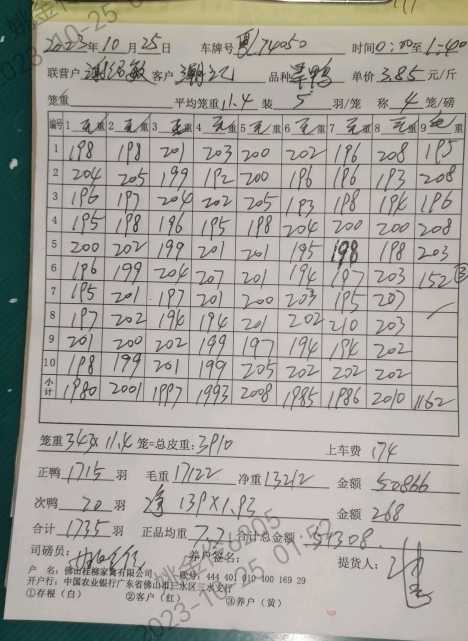 2023年10月25日 车牌号 74050 时间0:00至1:40
联营户 客户 品种 鸭 单价3.85元/斤
笼重 平均笼重11.4 装5羽/笼 称4笼/磅
编号 1 重 2 重 3 重 4 重 5 重 6 重 7 重 8 重 9 重
1 198 198 201 203 200 202 196 208 195
2 204 205 199 192 200 196 196 193 208
3 196 197 204 202 205 193 198 194 196
4 195 198 196 195 198 204 200 200 208
5 200 202 199 201 201 195 198 198 203
6 196 199 204 207 201 194 197 203 152 ③
7 195 201 197 201 200 203 195 207
8 197 202 194 194 201 202 210 203
9 201 200 202 199 197 194 194 202
10 198 199 201 199 205 202 202 202
小计 1980 2001 1997 1993 2008 1985 1986 2010 1162
笼重343×11.4笼=总皮重:3910 上车费 174
正鸭1715羽 毛重17122 净重13212 金额50866
次鸭20羽 139×1.93 金额268
合计1735羽 正品均重7.7 合计总金额51308
司磅员: 养户签名: 提货人:
户 名:佛山桂柳家禽有限公司 账号:444 401 010 400 169 29
开户行:中国农业银行广东省佛山市三水区三水支行
①存根(白) ②客户(红) ③养户(黄)
2023-10-25 01:52